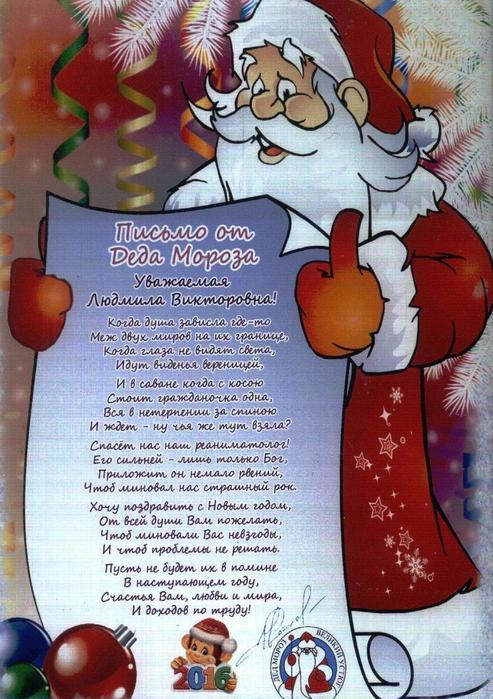 Письмо от
Деда Мороза
Уважаемая
Людмила Викторовна!
Когда душа зависла где-то
Меж двух миров на их границе,
Когда глаза не видят света,
Идут виденья вереницей,
И в саване когда с косою
Стоит гражданочка одна,
Вся в нетерпении за спиною
И ждет - ну чья же тут взяла?
Спасёт нас наш реаниматолог!
Его сильней - лишь только Бог,
Приложит он немало рвений,
Чтоб миновал нас страшный рок.
Хочу поздравить с Новым годом,
От всей души Вам пожелать,
Чтоб миновали Вас невзгоды,
И чтоб проблемы не решать.
Пусть не будет их в помине
В наступающем году,
Счастья Вам, любви и мира,
И доходов по труду!
2016
ДЕД МОРОЗ ВЕЛИКИЙ УСТЮГ